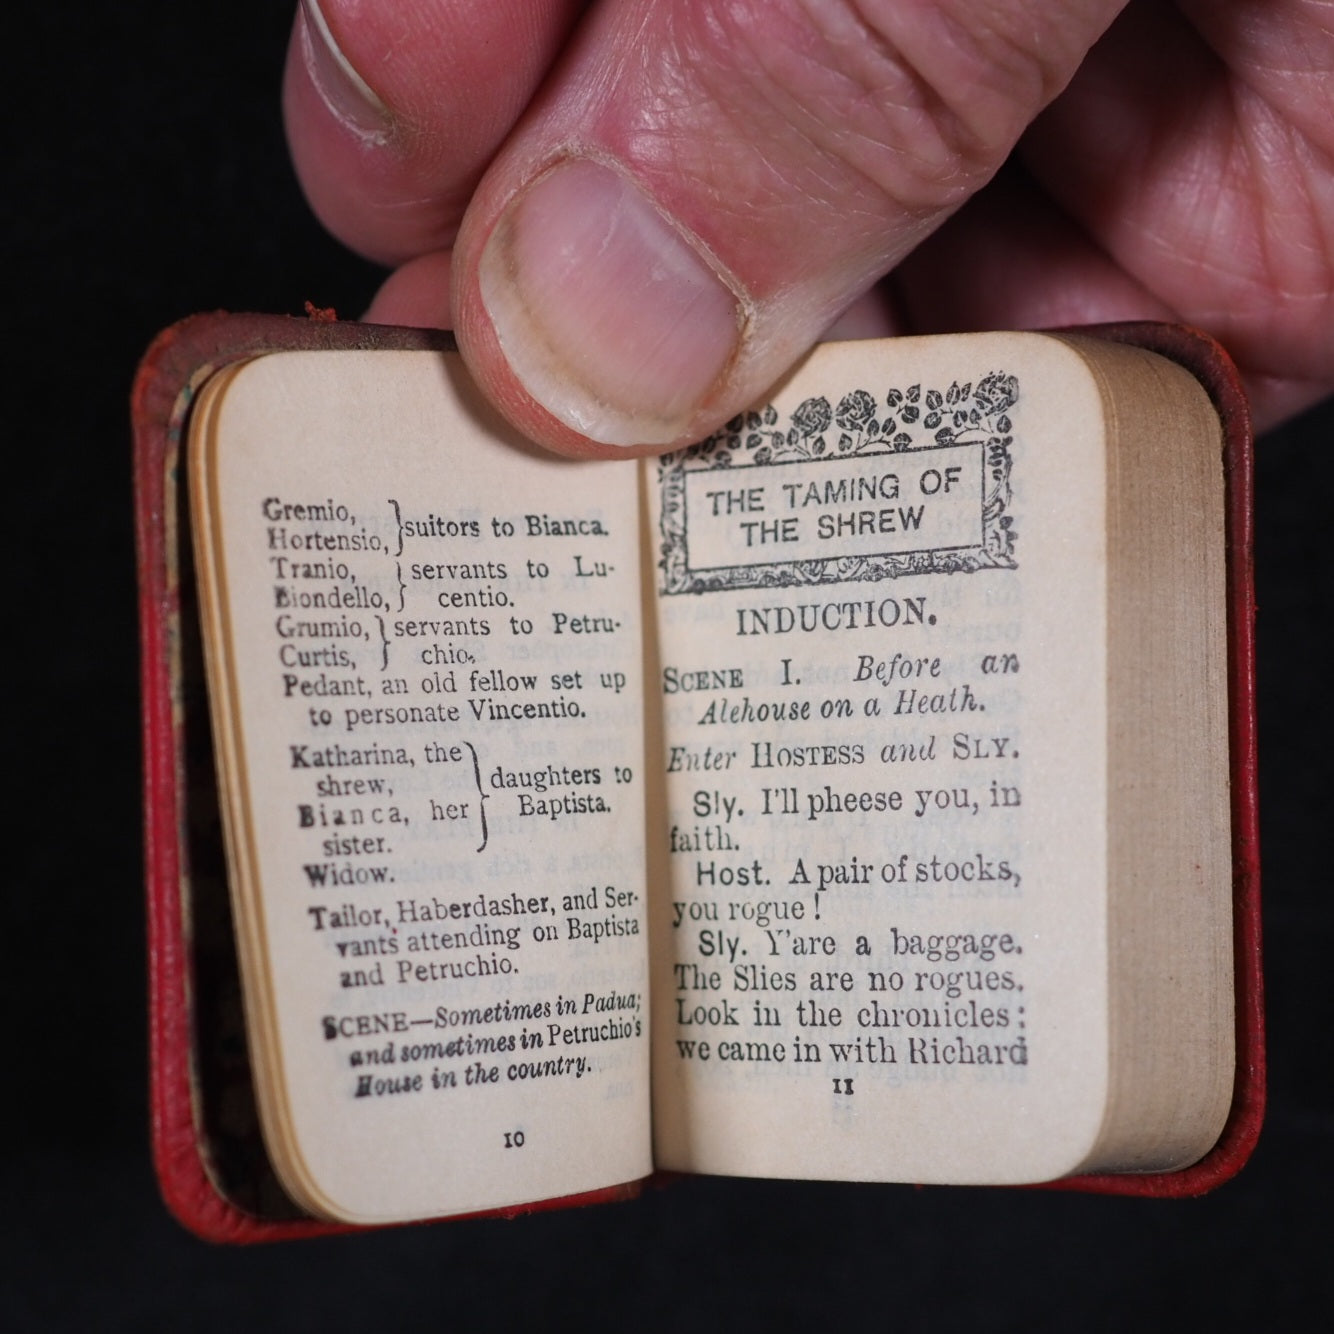 Gremio,
Hortensio, } suitors to Bianca.
Tranio, } servants to Lu-
Biondello, } centio.
Grumio, } servants to Petru-
Curtis, } chio.
Pedant, an old fellow set up
to personate Vincentio.
Katharina, the
shrew,
} daughters to
Bianca, her } Baptista.
sister.
Widow.
Tailor, Haberdasher, and Ser-
vants attending on Baptista
and Petruchio.
SCENE—Sometimes in Padua;
and sometimes in Petruchio's
House in the country.
10
THE TAMING OF
THE SHREW
INDUCTION.
SCENE I. Before an
Alehouse on a Heath.
Enter HOSTESS and SLY.
Sly. I'll pheese you, in
faith.
Host. A pair of stocks,
you rogue!
Sly. Y'are a baggage.
The Slies are no rogues.
Look in the chronicles;
we came in with Richard
11